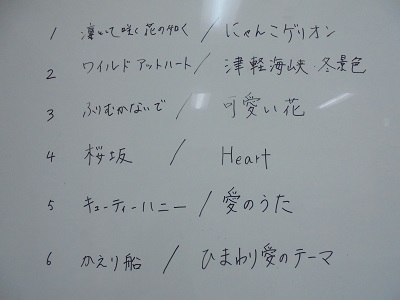 1 凛として咲く花の如く / にゃんこゲリオン
2 ワイルドアットハート / 津軽海峡・冬景色
3 ふりむかないで / 可愛い花
4 桜坂 / Heart
5 キューティーハニー / 愛のうた
6 かえり船 / ひまわり愛のテーマ